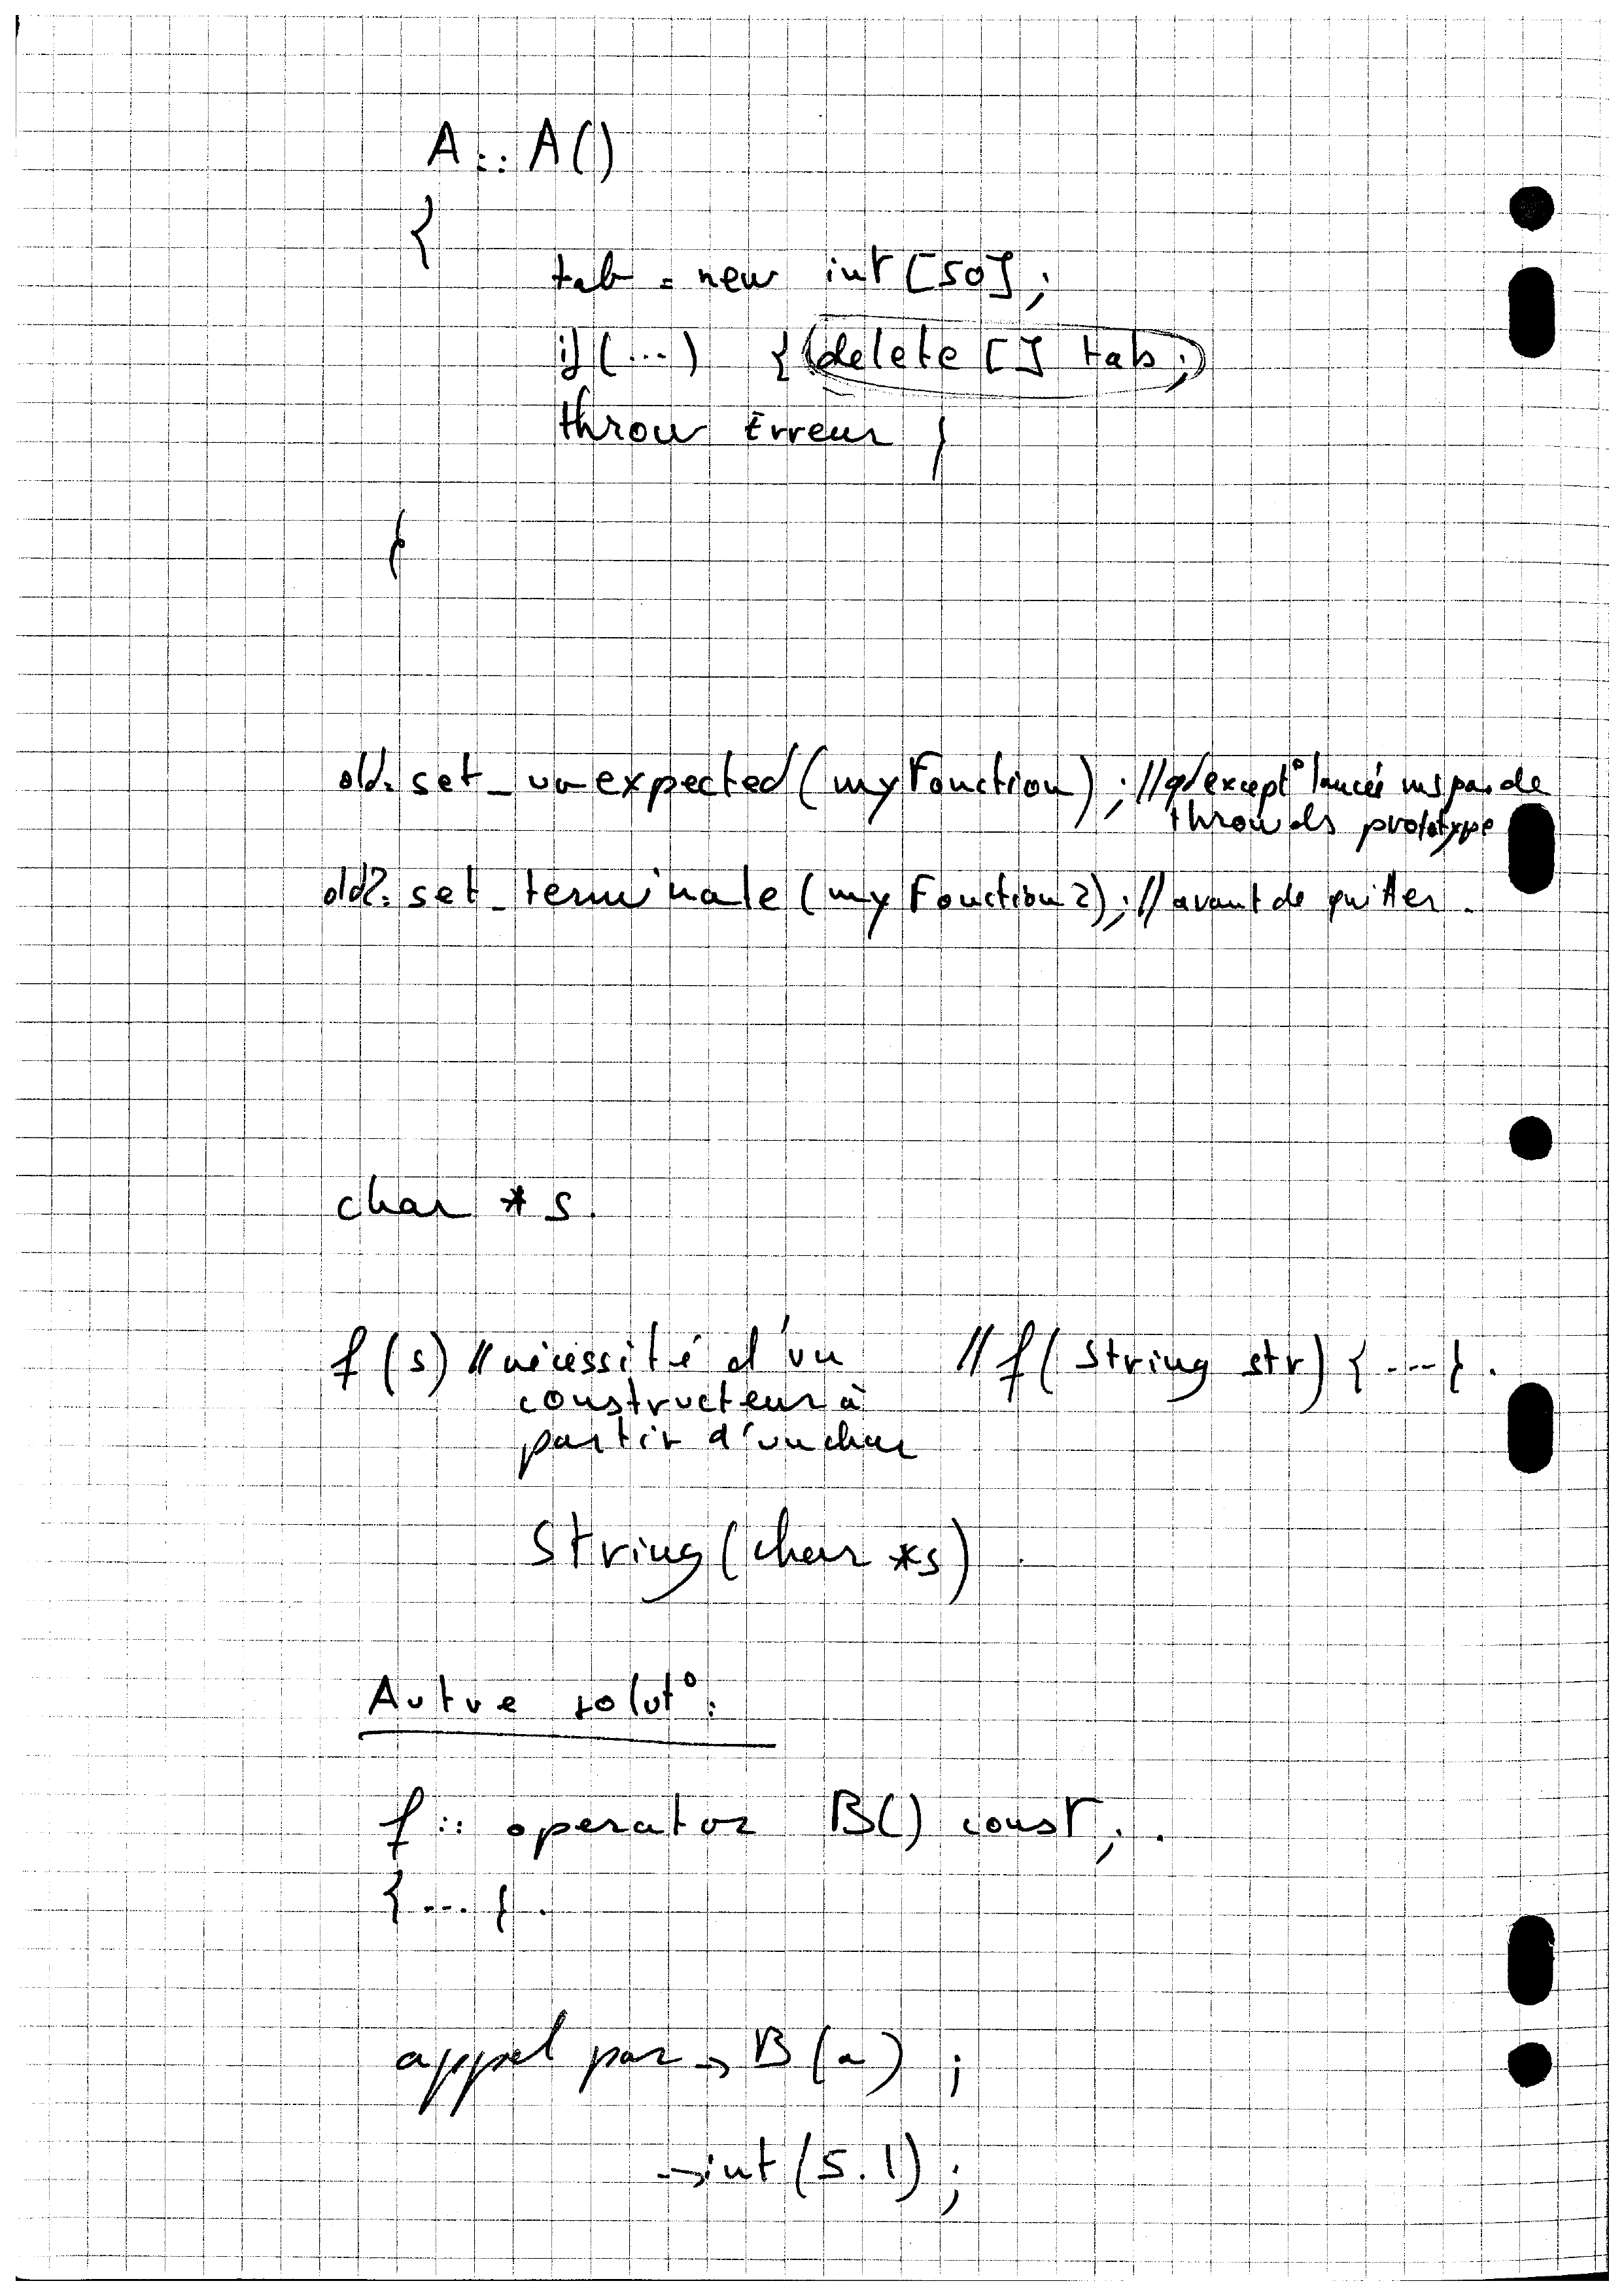 A::A()
{
tab = new int[50];
if(...) {delete [] tab;
throw Erreur }
}
old= set_unexpected(myFonction); //qd except° lancée ms pas de
throw ds prototype
old2= set_terminate(myFonction2); //avant de quitter.
char *s.
f(s) //nécessité d'un //f(String str){...}.
constructeur à
partir d'un char
String(char *s).
Autre solut°:
f:: operator B() const;.
{...}.
appel par → B(a);
→ int(5.1);